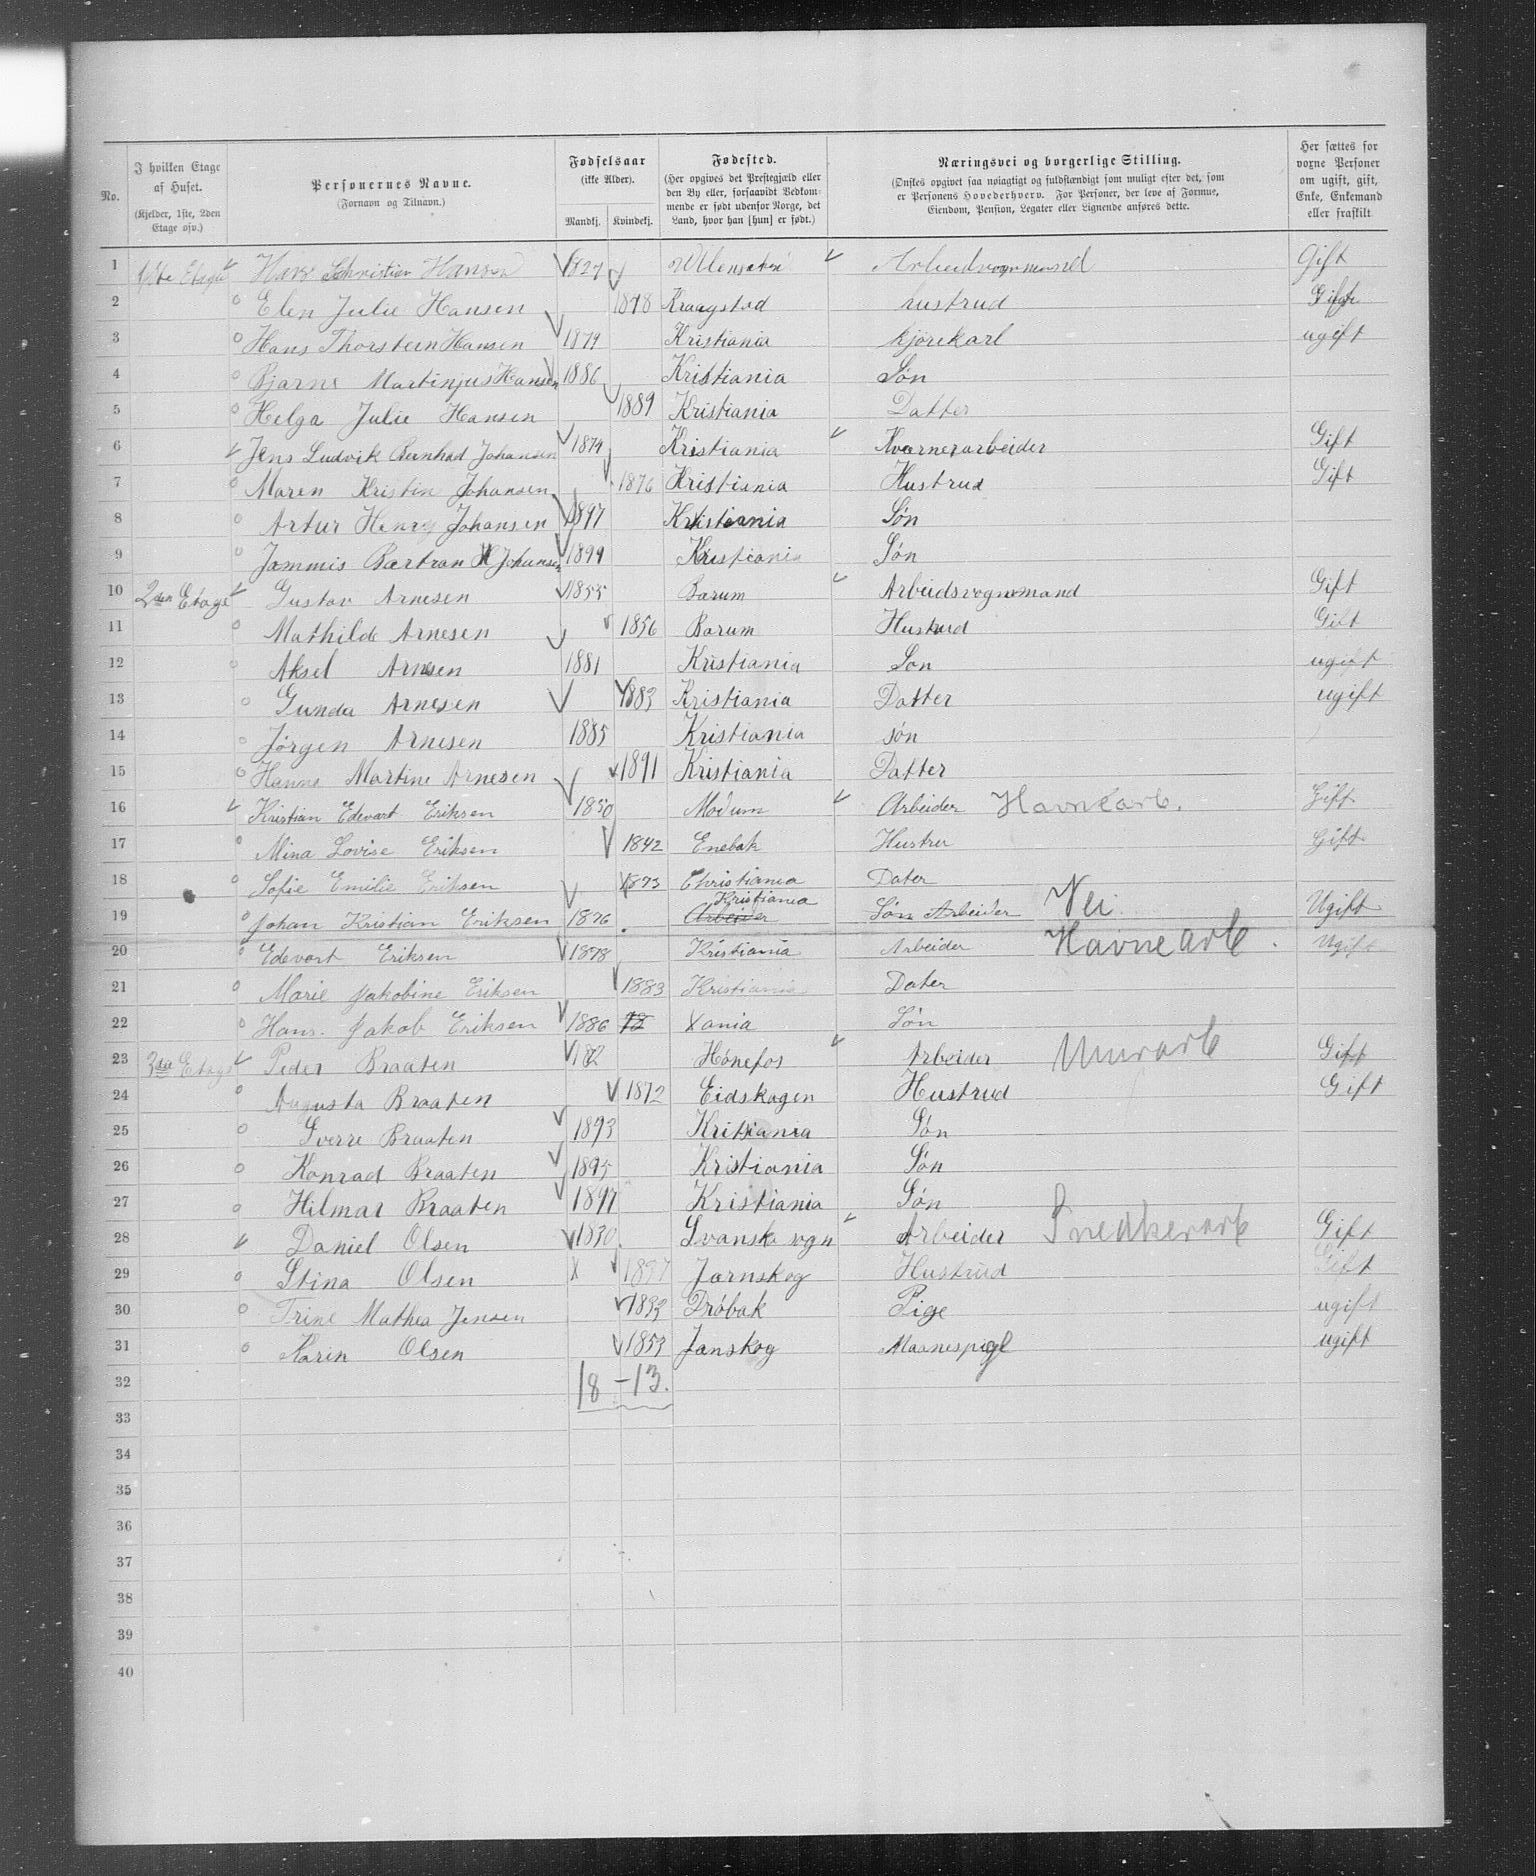 No.
I hvilken Etage af Huset. (Kjelder, 1ste, 2den Etage osv.)
Personernes Navne. (Fornavn og Tilnavn.)
Fødselsaar (ikke Alder). Mandkj. Kvindekj.
Fødested. (Her opgives det Prestegjæld eller den By eller, forsaavidt Vedkommende er født udenfor Norge, det Land, hvor han [hun] er født.)
Næringsvei og borgerlige Stilling. (Ønskes opgivet saa nøiagtigt og fuldstændigt som muligt efter det, som er Personens Hovederhverv. For Personer, der leve af Formue, Eiendom, Pension, Legater eller Lignende anføres dette.
Her sættes for voxne Personer om ugift, gift, Enke, Enkemand eller fraskilt
1 1ste Etage Hans Christian Hansen 1827 Ullensaker Arbeidvognmand Gift
2 Elen Julie Hansen 1848 Kraagstad hustrud Gift
3 Hans Thorsteen Hansen 1879 Kristiania kjørekarl ugift
4 Bjarne Martinjus Hansen 1886 Kristiania Søn
5 Helga Julie Hansen 1889 Kristiania Datter
6 Jens Ludvik Bernhad Johansen 1874 Kristiania Kværnerarbeider Gift
7 Maren Kristin Johansen 1876 Kristiania Hustrud Gift
8 Artur Henry Johansen 1897 Kristiania Søn
9 Jammis Bartran H Johansen 1899 Kristiania Søn
10 2den Etage Gustav Arnesen 1855 Barum Arbeidsvognmand Gift
11 Mathilde Arnesen 1856 Barum Hustrud Gift
12 Aksel Arnesen 1881 Kristiania Son ugift
13 Gunda Arnesen 1883 Kristiania Datter ugift
14 Jørgen Arnesen 1885 Kristiania søn
15 Hanna Martine Arnesen 1891 Kristiania Datter
16 Kristian Edevart Eriksen 1850 Modum Arbeider Havnearb. Gift
17 Mina Lovise Eriksen 1842 Enebak Hustru Gift
18 Sofie Emilie Eriksen 1873 Christiania Dater
19 Johan Kristian Eriksen 1876 Arbeider Kristiania Søn Arbeider Vei Ugift
20 Edevart Eriksen 1878 Kristiania Arbeider Havnearb. Ugift
21 Marie Jakobine Eriksen 1883 Kristiania Dater
22 Hans. Jakob Eriksen 1886 18 Xania Søn
23 3die Etage Peder Braaten Hønefos Arbeider Murarb Gift
24 Augusta Braaten 1872 Eidskogen Hustrud Gift
25 Sverre Braaten 1893 Kristiania Søn
26 Konrad Braaten 1895 Kristiania Søn
27 Hilmar Braaten 1897 Kristiania Søn
28 Daniel Olsen 1830 Svanskogn Arbeider Snedkerarb Gift
29 Stina Olsen X Jarnskog Hustrud Gift
30 Trine Mathea Jensen 1833 Drøbak Pige ugift
31 Karin Olsen 1853 Janskog Maanespige ugift
32 18 – 13.
33
34
35
36
37
38
39
40